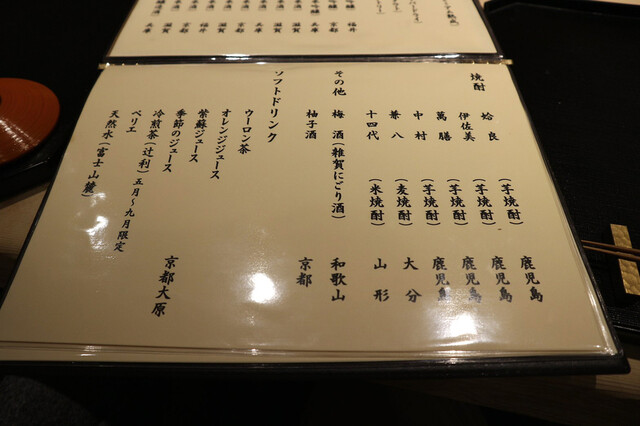 福井
焼酎
蛤良 (芋焼酎) 鹿児島
伊佐美 (芋焼酎) 鹿児島
萬膳 (芋焼酎) 鹿児島
中村 (芋焼酎) 鹿児島
兼八 (麦焼酎) 大分
十四代 (米焼酎) 山形
その他 梅酒(雑賀にごり酒) 和歌山
柚子酒 京都
ソフトドリンク
ウーロン茶
オレンジジュース
紫蘇ジュース 京都大原
季節のジュース
冷煎茶(辻利)五月〜九月限定
ペリエ
天然水(富士山麓)